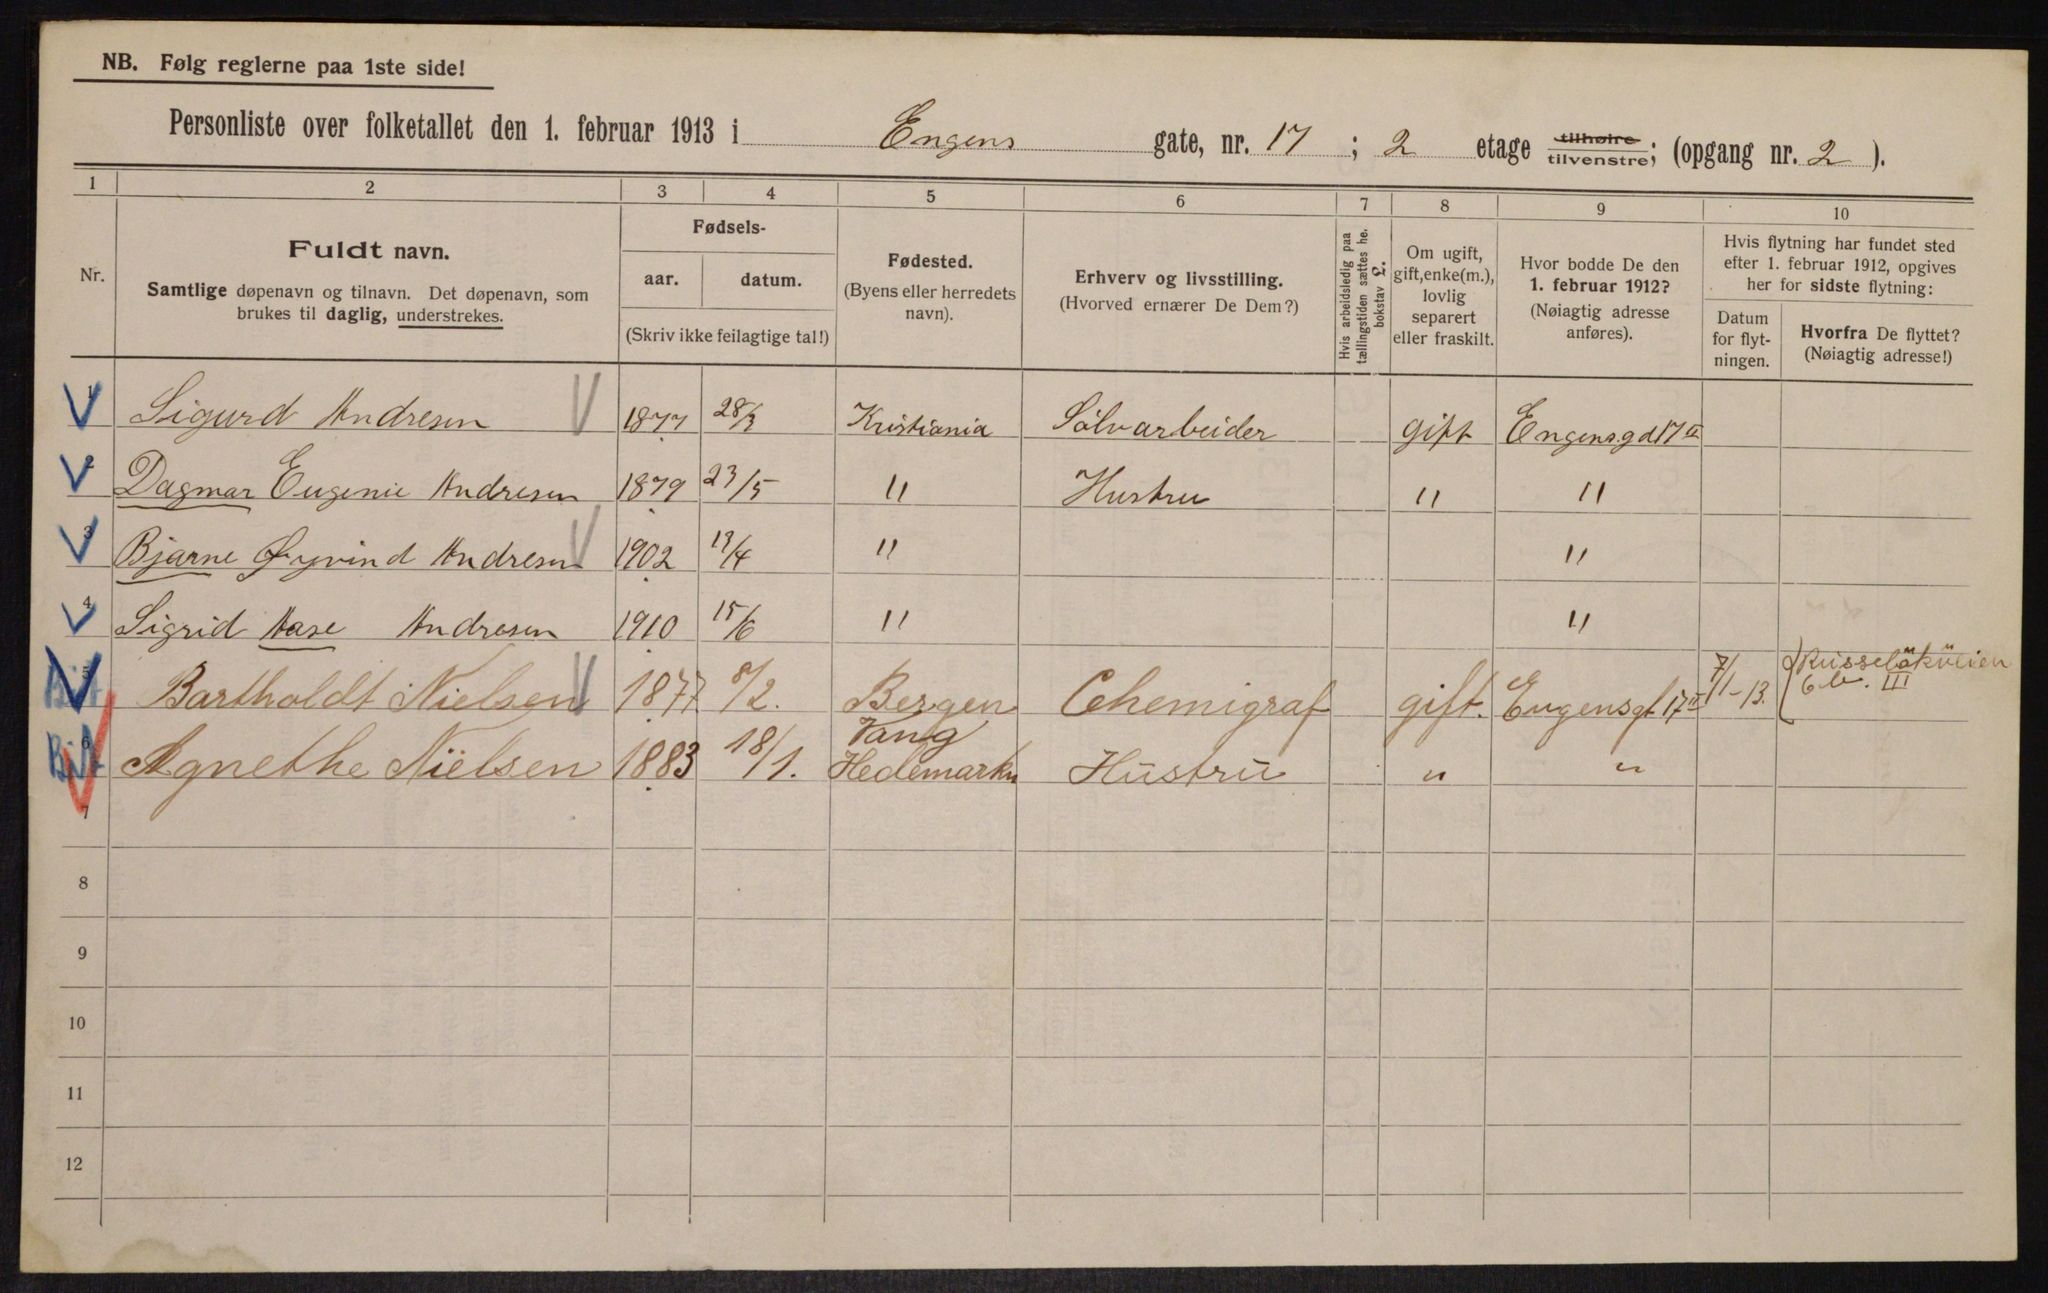 NB. Følg reglerne paa 1ste side!
Personliste over folketallet den 1. februar 1913 i Engens gate, nr. 17 ; 2 etage tilhøire tilvenstre; (opgang nr. 2 ).
1 2 3 4 5 6 7 8 9 10
Nr.
Fuldt navn.
Samtlige døpenavn og tilnavn. Det døpenavn, som
brukes til daglig, understrekes.
Fødsels-
aar. datum.
(Skriv ikke feilagtige tal!)
Fødested.
(Byens eller herredets
navn).
Erhverv og livsstilling.
(Hvorved ernærer De Dem?)
Hvis arbeidsledig paa
tællingstiden sættes he.
bokstav L.
Om ugift,
gift, enke(m.),
lovlig
separert
eller fraskilt.
Hvor bodde De den
1. februar 1912?
(Nøiagtig adresse
anføres).
Hvis flytning har fundet sted
efter 1. februar 1912, opgives
her for sidste flytning:
Datum
for flyt-
ningen.
Hvorfra De flyttet?
(Nøiagtig adresse!)
1 Sigurd Andresen 1877 28/3 Kristiania Sölvarbeider gift Engensgd 17 II
2 Dagmar Eugenie Andresen 1879 23/5 " Hustru " "
3 Bjarne Øyvind Andresen 1902 13/4 " "
4 Sigrid Aase Andresen 1910 15/6 " "
5 Bartholdt Nielsen 1877 8/2. Bergen Chemigraf gift. Engensgt 17 II 7/1-13. Russeløkveien
6 b. III
6 Agnethe Nielsen 1883 18/1. Vang
Hedemarken Hustru " "
7
8
9
10
11
12